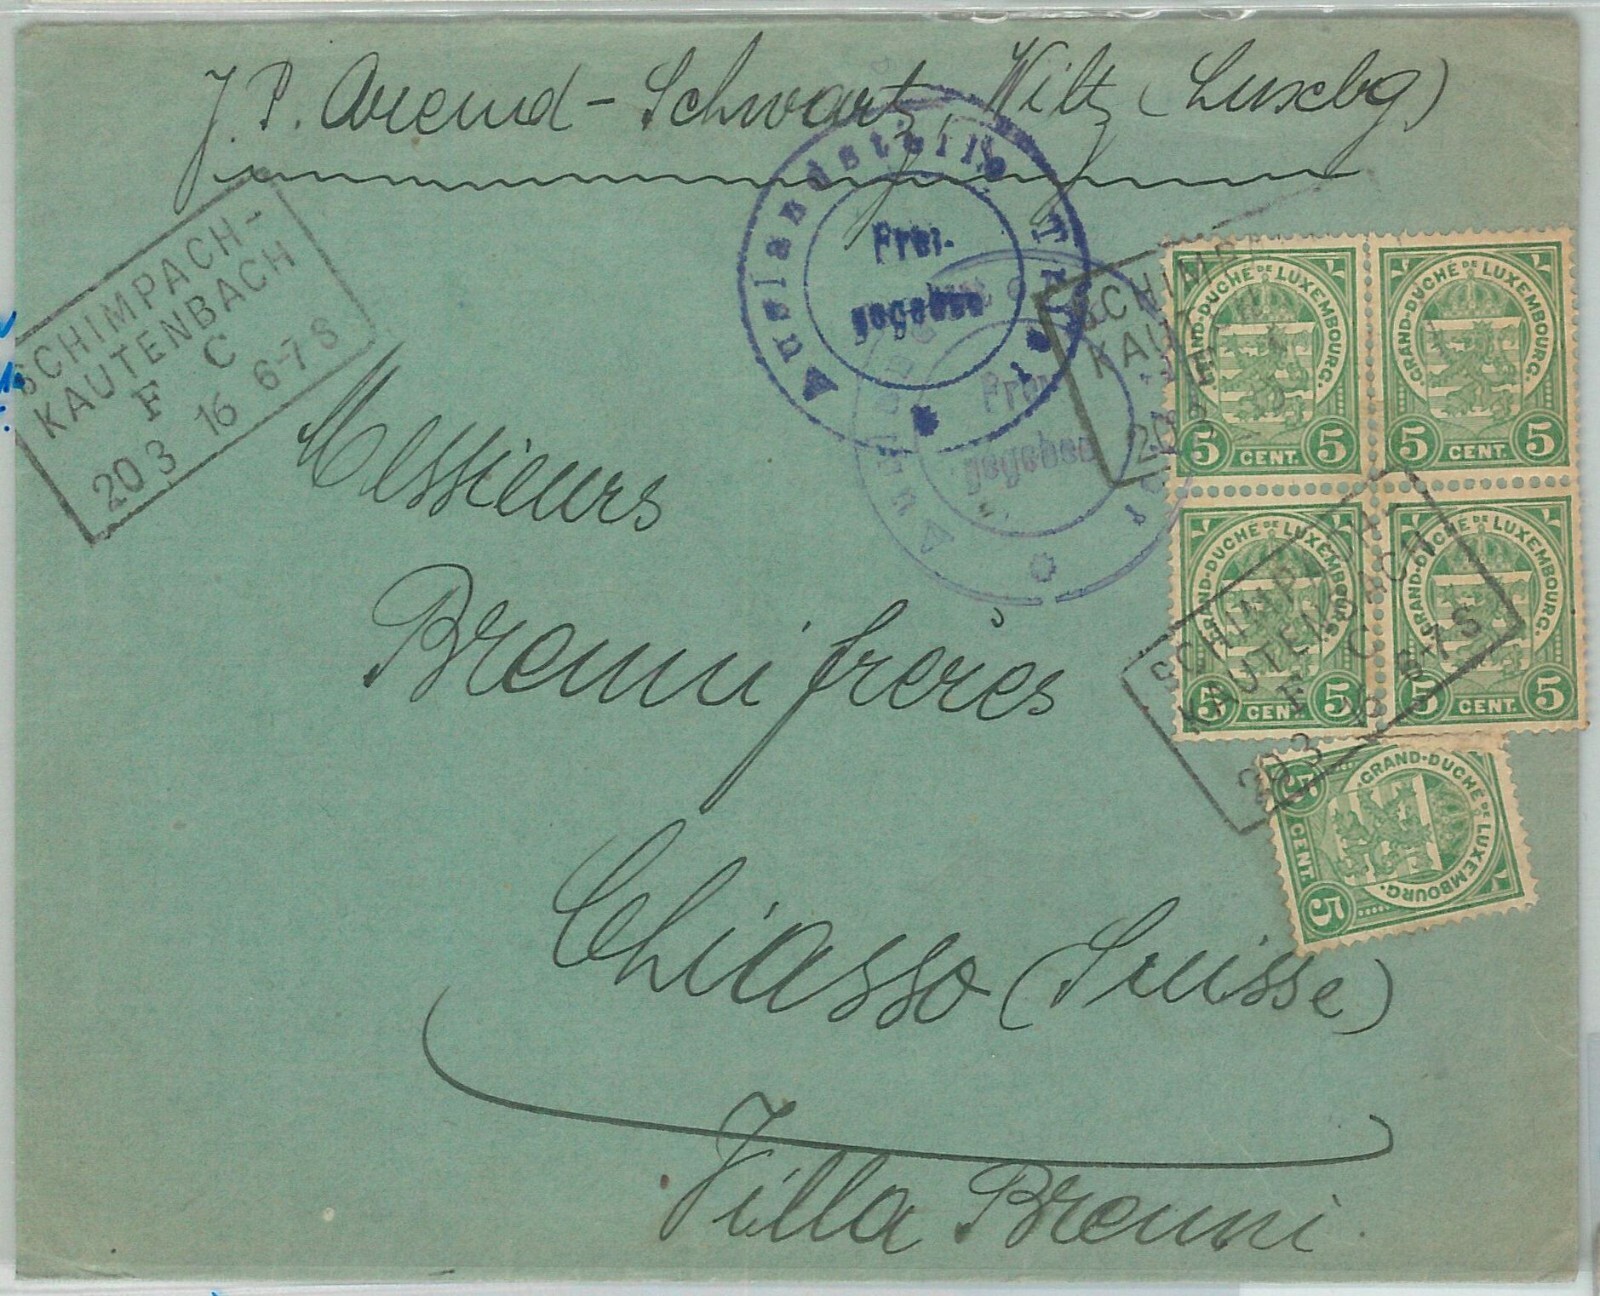 J. P. Arend-Schwartz, Wiltz (Luxbg)
SCHIMPACH-
KAUTENBACH
F C
20 3 16 6-7 S
Auslandstelle Trier
Frei-
gegeben
Frei-
gegeben
SCHIMPA
KAUT
20 3
GRAND-DUCHÉ DE LUXEMBOURG.
5 CENT. 5
GRAND-DUCHÉ DE LUXEMBOURG.
5 CENT. 5
GRAND-DUCHÉ DE LUXEMBOURG.
5 CENT. 5
GRAND-DUCHÉ DE LUXEMBOURG.
5 CENT. 5
SCHIMPACH-
KAUTENBACH
F C
20 3 16 6-7 S
GRAND-DUCHÉ DE LUXEMBOURG.
5 CENT. 5
Messieurs
Brenni frères
Chiasso (Suisse)
Villa Brenni